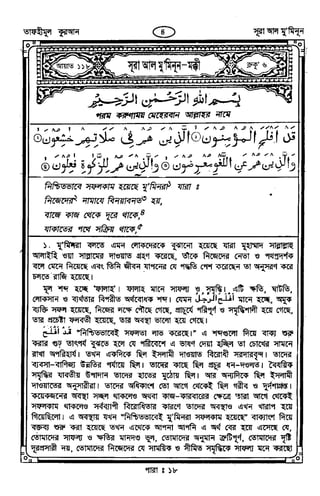 তাফহীমুল কুরআন
৪
সূরা আল মু'মিনূন
আয়াত ১১৮
সূরা আল মু'মিনূন-মক্কী
রুকূ' ৬
بِسْمِ اللّٰهِ الرَّحْمٰنِ الرَّحِيْمِ
পরম করুণাময় মেহেরবান আল্লাহর নামে
قَدْ أَفْلَحَ الْمُؤْمِنُوْنَ ۝ الَّذِيْنَ هُمْ فِيْ صَلَاتِهِمْ خٰشِعُوْنَ ۝
وَالَّذِيْنَ هُمْ عَنِ اللَّغْوِ مُعْرِضُوْنَ ۝ وَالَّذِيْنَ هُمْ لِلزَّكٰوةِ فٰعِلُوْنَ ۝
নিশ্চিতভাবে সফলকাম হয়েছে মু'মিনরা যারা ঃ
নিজেদের নামাযে বিনয়াবনত হয়,
বাজে কাজ থেকে দূরে থাকে,৪
যাকাতের পথে সক্রিয় থাকে,৫
১. মু'মিনরা বলতে এমন লোকদেরকে বুঝানো হয়েছে যারা মুহাম্মাদ সাল্লাল্লাহু
আলাইহি ওয়া সাল্লামের দাওয়াত গ্রহণ করেছে, তাঁকে নিজেদের নেতা ও পথপ্রদর্শক
বলে মেনে নিয়েছে এবং তিনি জীবন যাপনের যে পদ্ধতি পেশ করেছেন তা অনুসরণ করে
চলতে রাজি হয়েছে।
মূল শব্দ হচ্ছে 'ফালাহ'। ফালাহ মানে সাফল্য ও সমৃদ্ধি। এটি ক্ষতি, ঘাটতি,
লোকসান ও ব্যর্থতার বিপরীত অর্থবোধক শব্দ। যেমন أَفْلَحَ الرَّجُلُ মানে হচ্ছে, অমুক
ব্যক্তি সফল হয়েছে, নিজের লক্ষে পৌঁছে গেছে, প্রাচুর্যে পরিপূর্ণ ও সমৃদ্ধিশালী হয়ে গেছে,
তার প্রচেষ্টা ফলবতী হয়েছে, তার অবস্থা ভালো হয়ে গেছে।
قَدْ أَفْلَحَ "নিশ্চিতভাবেই সফলতা লাভ করেছে।" এ শব্দগুলো দিয়ে বাক্য শুরু
করার গূঢ় তাৎপর্য বুঝতে হলে যে পরিবেশে এ ভাষণ দেয়া হচ্ছিল তা চোখের সামনে
রাখা অপরিহার্য। তখন একদিকে ছিল ইসলামী দাওয়াত বিরোধী সরদারবৃন্দ। তাদের
ব্যবসা-বাণিজ্য উন্নতির পর্যায়ে ছিল। তাদের কাছে ছিল প্রচুর ধন-দওলত। বৈষয়িক
সমৃদ্ধির যাবতীয় উপাদান তাদের হাতের মুঠোয় ছিল। আর অন্যদিকে ছিল ইসলামী
দাওয়াতের অনুসারীরা। তাদের অধিকাংশ তো আগে থেকেই ছিল গরীব ও দুর্দশাগ্রস্ত।
কয়েকজনের অবস্থা সচ্ছল থাকলেও অথবা কাজ-কারবারের ক্ষেত্রে তারা আগে থেকেই
সফলকাম থাকলেও সর্বব্যাপী বিরোধিতার কারণে তাদের অবস্থাও এখন খারাপ হয়ে
গিয়েছিলো। এ অবস্থায় যখন "নিশ্চিতভাবেই মু'মিনরা সফলকাম হয়েছে" বাক্যাংশ দিয়ে
বক্তব্য শুরু করা হয়েছে তখন এথেকে আপনা আপনি এ অর্থ বের হয়ে এসেছে যে,
তোমাদের সাফল্য ও ক্ষতির মানদণ্ড ভুল, তোমাদের অনুমান ত্রুটিপূর্ণ, তোমাদের দৃষ্টি
দূরপ্রসারী নয়, তোমাদের নিজেদের যে সাময়িক ও সীমিত সমৃদ্ধিকে সাফল্য মনে করছো,
পারা ঃ ১৮